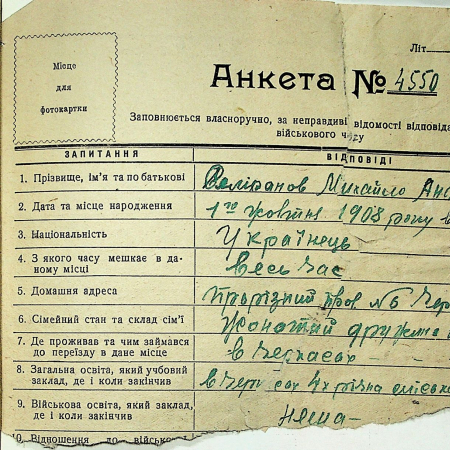 Місце
для
фотокартки
Літ.
Анкета № 4550
Заповнюється власноручно, за неправдиві відомості відповіда
військового часу
ЗАПИТАННЯ ВІДПОВІДІ
1. Прізвище, ім'я та по батькові Михайло
2. Дата та місце народження 1го жовтня 1908 року в
3. Національність Українець
4. З якого часу мешкає в даному місці весь час
5. Домашня адреса Прорізний пров. №6 Чер
6. Сімейний стан та склад сім'ї Жонатий дружина
7. Де проживав та чим займався
до переїзду в дане місце в Черкасах
8. Загальна освіта, який учбовий
заклад, де і коли закінчив в Черкасах 4х річна міська
9. Військова освіта, який заклад,
де і коли закінчив нема-
10. Відношення до військової